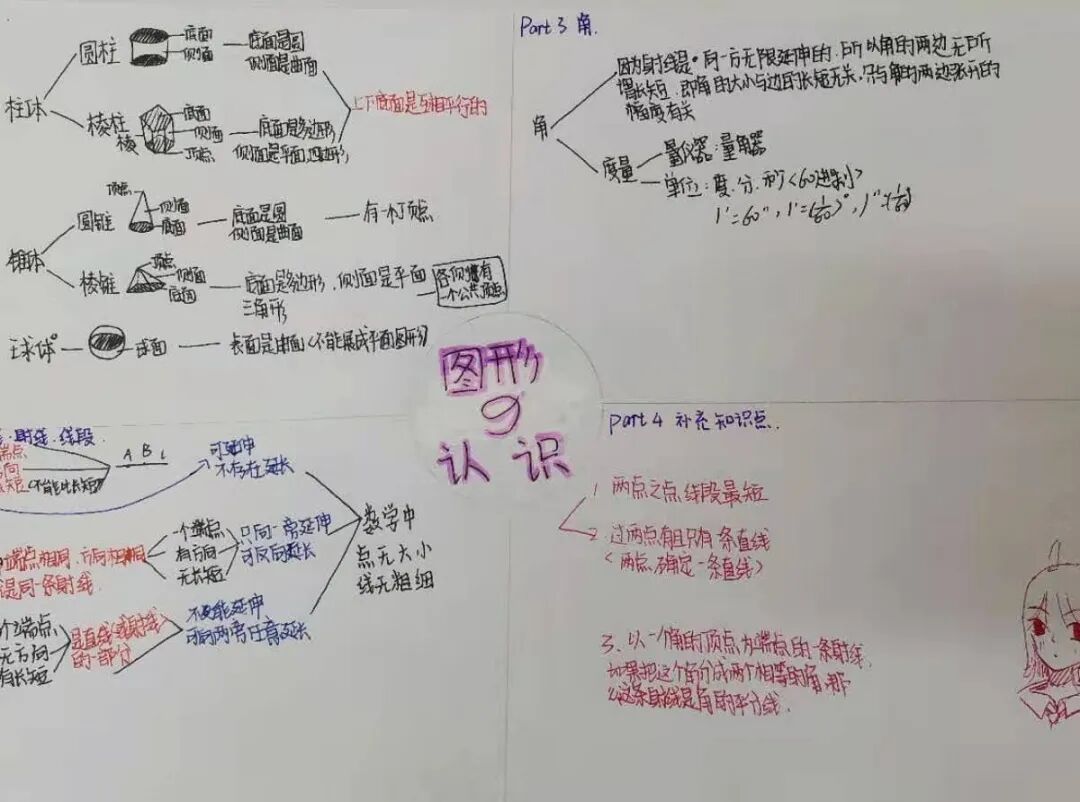 柱体
圆柱
底面
侧面
底面是圆
侧面是曲面
棱柱
棱
底面
侧面
顶点
底面是多边形
侧面是平面,四边形
上下底面是互相平行的
锥体
圆锥
顶点
侧面
底面
底面是圆
侧面是曲面
有一个顶点
棱锥
顶点
侧面
底面
底面是多边形,侧面是平面
三角形
各侧面有
一个公共顶点
球体
球面
表面是曲面(不能展成平面图形)
图形
の
认识
Part 3 角.
角
因为射线是向一方无限延伸的,所以角的两边无所
谓长短,即角的大小与边的长短无关,只与角的两边张开的
幅度有关
度量
量仪器:量角器
单位:度.分.秒<60进制>
1'=60", 1'=(1/60)°, 1"=(1/60)'
射线.线段.
端点
方向
长短(不能比长短)
A B l
可延伸
不存在延长
端点相同,方向相同
是同一条射线.
一个端点
有方向
无长短
只向一旁延伸
可反向延长
个端点
无方向
有长短
是直线(或射线)
的一部分
不能延伸
可向两旁任意延长
数学中
点无大小
线无粗细
Part 4 补充知识点.
1. 两点之点线段最短
2. 过两点有且只有一条直线
<两点确定一条直线>
3、以一个角的顶点为端点的一条射线,
如果把这个角分成两个相等的角,那
么这条射线是角的平分线.